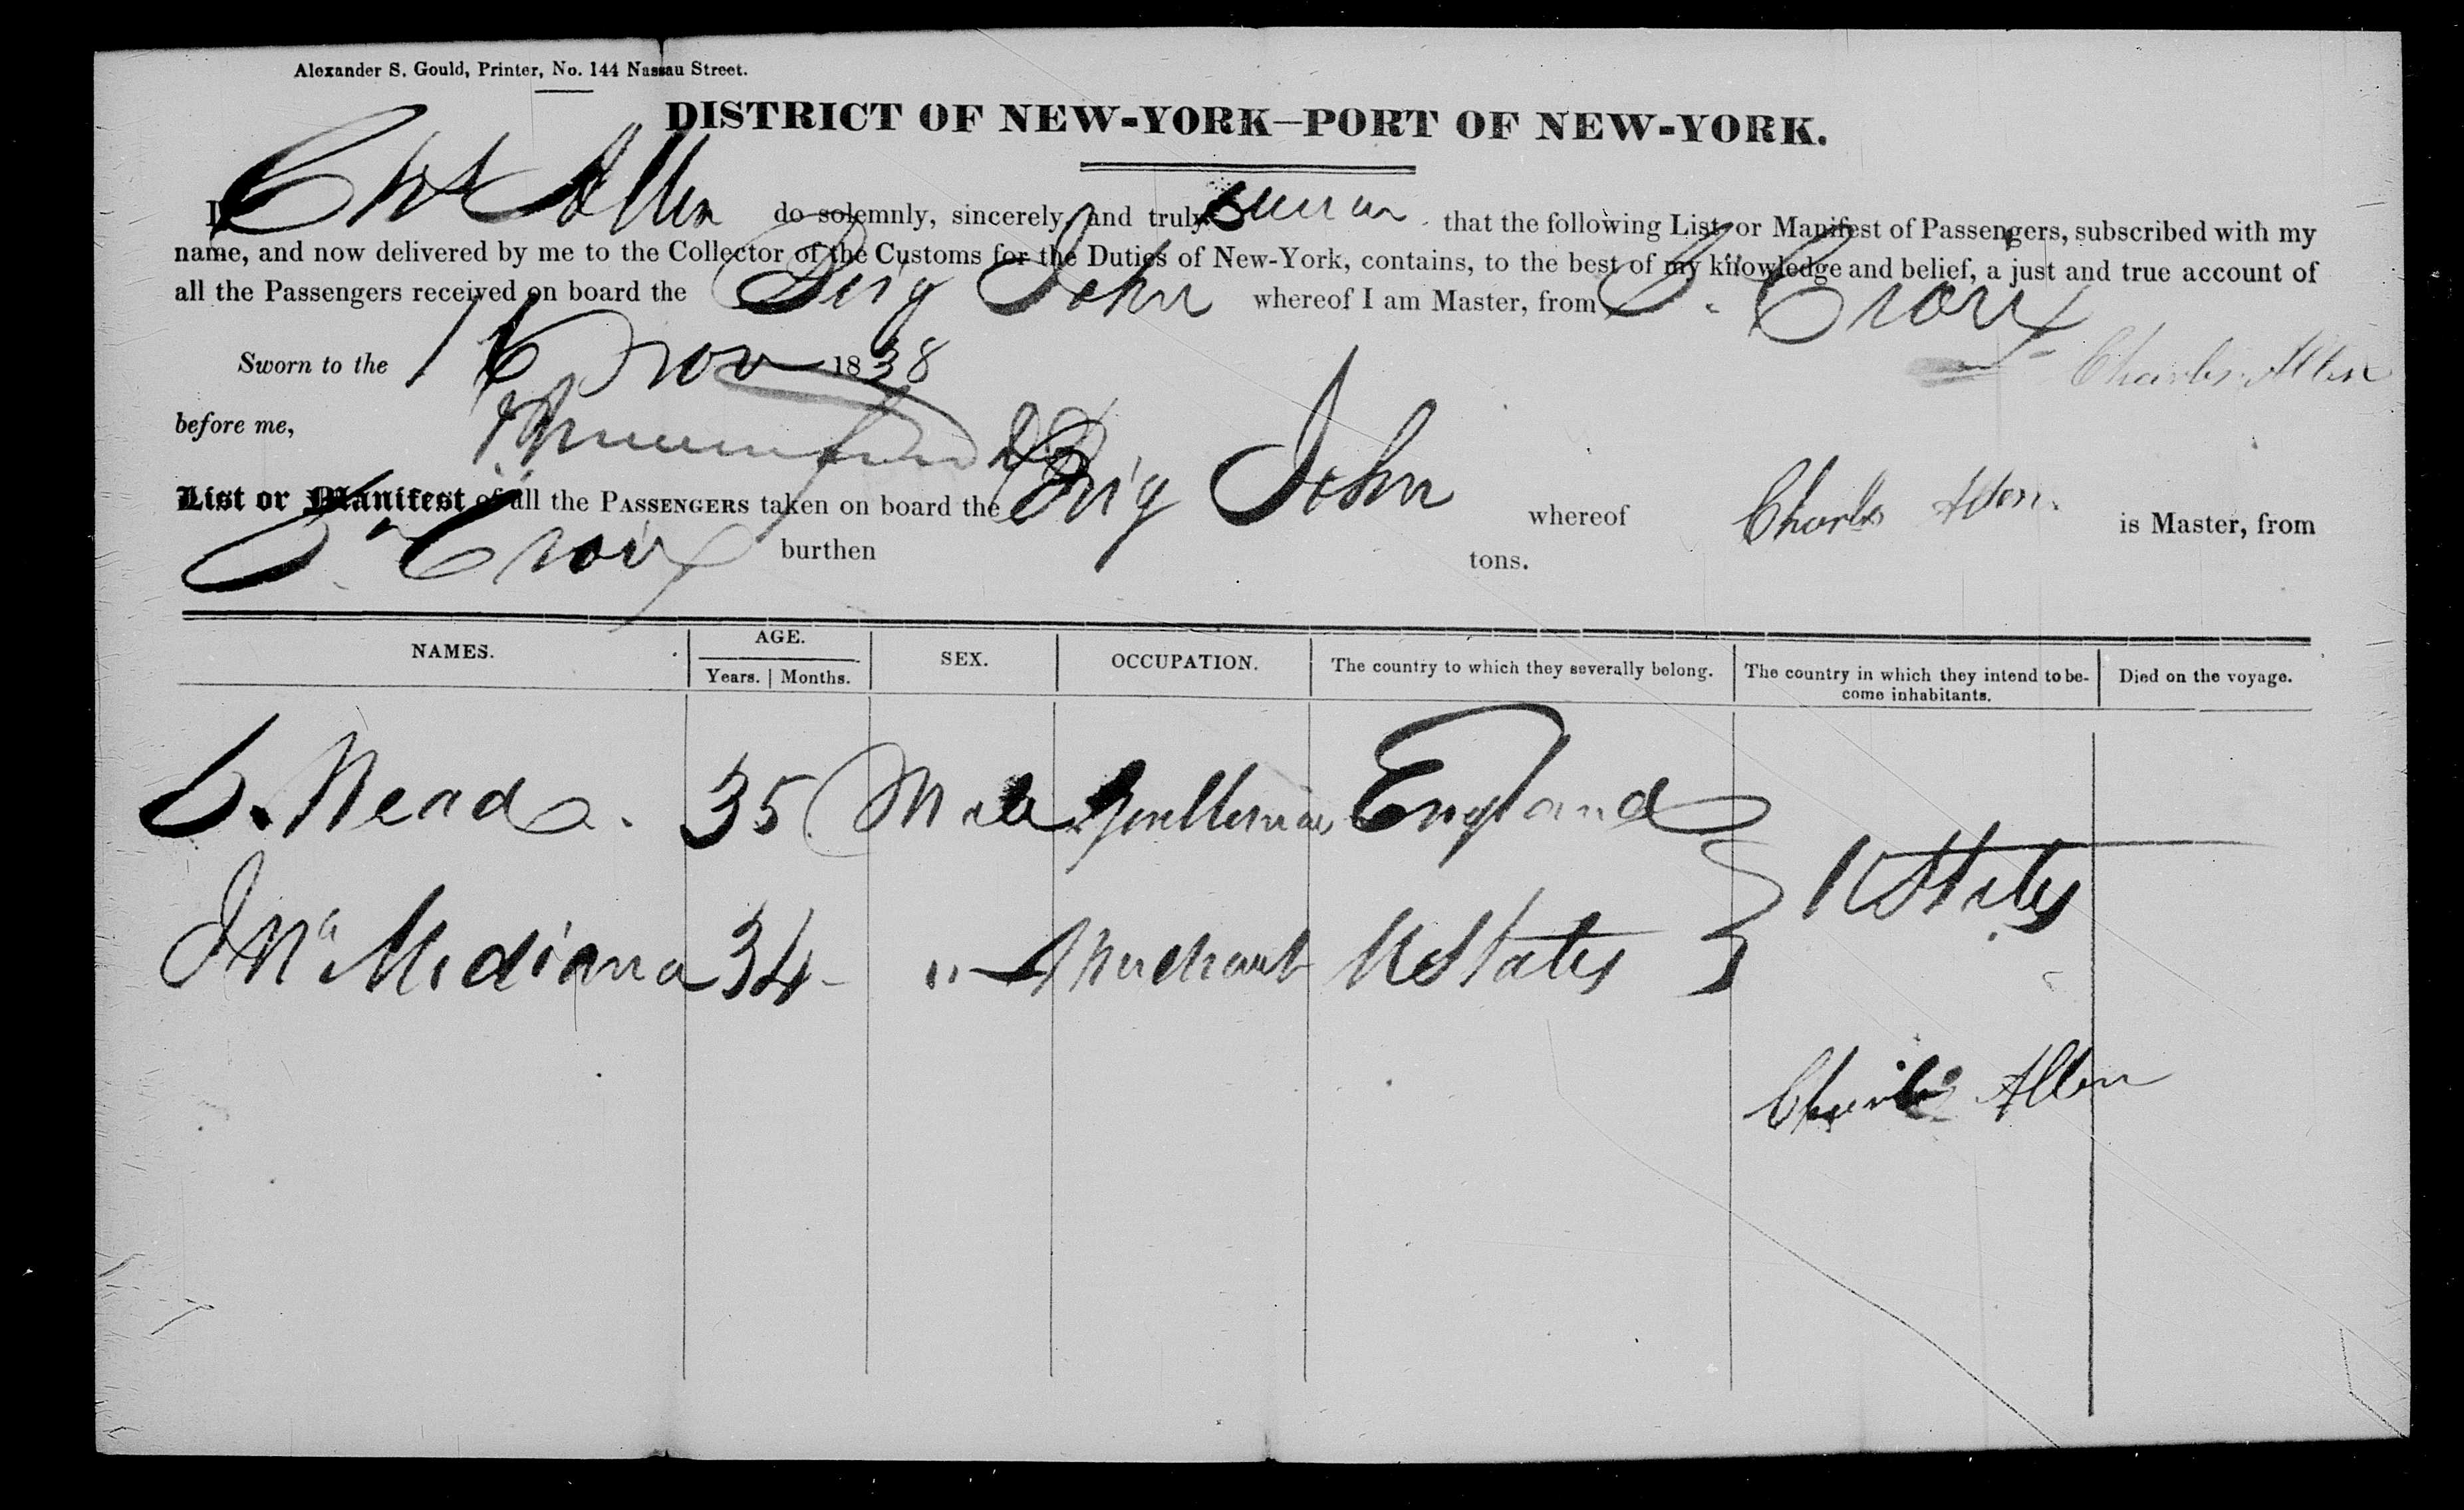 Alexander S. Gould, Printer, No. 144 Nassau Street.
DISTRICT OF NEW-YORK—PORT OF NEW-YORK.
I Chs Allen do solemnly, sincerely and truly swear that the following List or Manifest of Passengers, subscribed with my
name, and now delivered by me to the Collector of the Customs for the Duties of New-York, contains, to the best of my knowledge and belief, a just and true account of
all the Passengers received on board the Brig John whereof I am Master, from St. Croix
Sworn to the 16 Nov 1838 Charles Allen
before me,
List or Manifest of all the PASSENGERS taken on board the Brig John whereof Charles Allen. is Master, from
St. Croix burthen tons.
NAMES. AGE. SEX. OCCUPATION. The country to which they severally belong. The country in which they intend to be- Died on the voyage.
Years. Months. come inhabitants.
35 Male Gentleman England
U States
Mediana 34 - " Merchant U States
Charles Allen